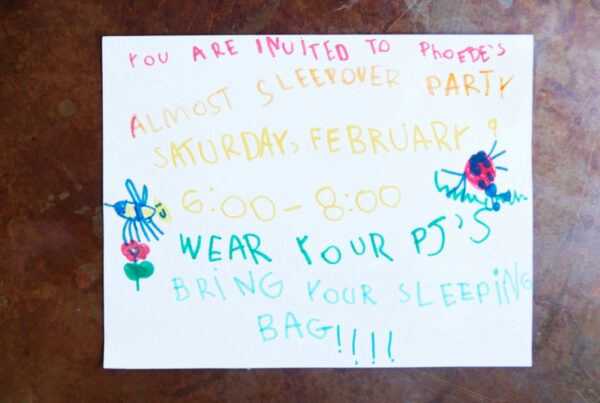 YOU ARE INVITED TO PHOEBE'S
ALMOST SLEEPOVER PARTY
SATURDAY, FEBRUARY 9
6:00-8:00
WEAR YOUR PJ'S
BRING YOUR SLEEPING
BAG!!!!